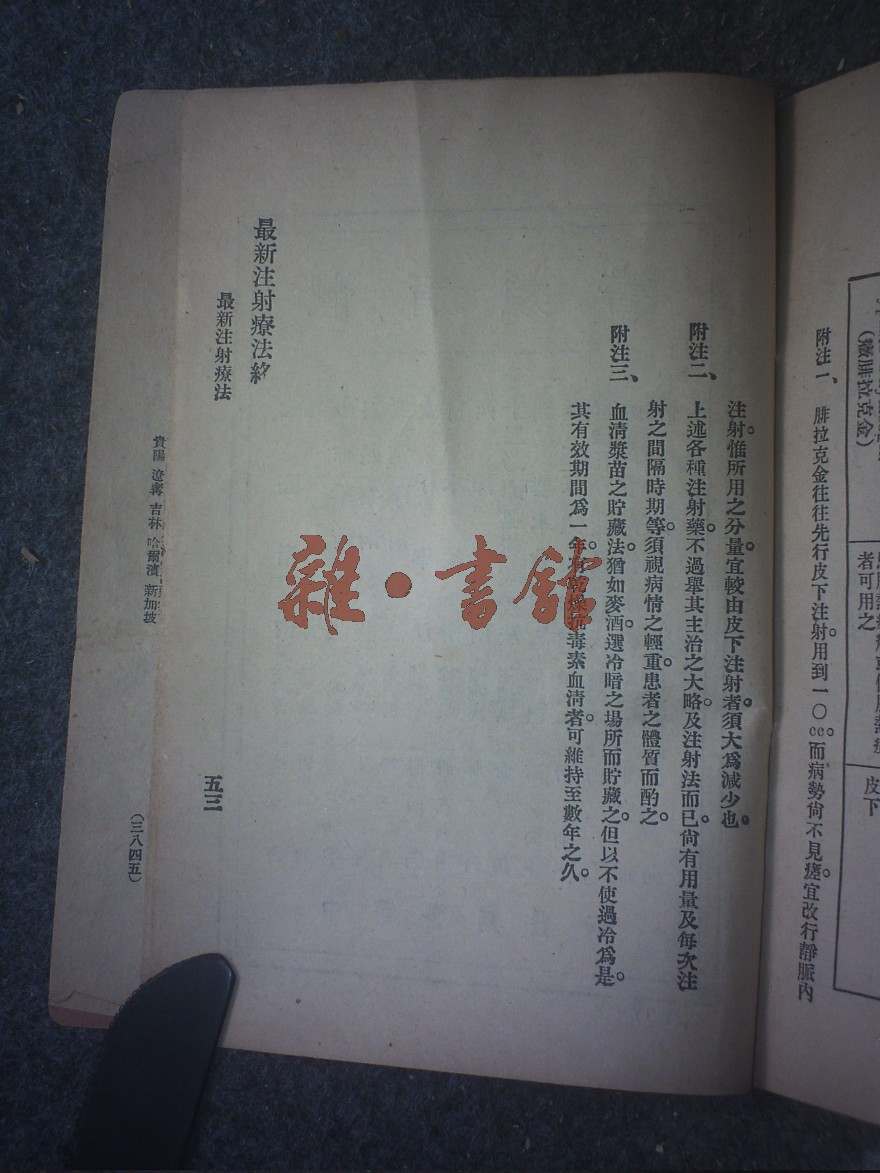 (癈腓拉克金)
者可用之
皮下
附注一、腓拉克金往往先行皮下注射。用到一〇cc。而病勢尙不見瘥。宜改行靜脈內
注射。惟所用之分量。宜較由皮下注射者。須大爲減少也。
附注二、上述各種注射藥。不過舉其主治之大略。及注射法而已。尙有用量及每次注
射之間隔時期等。須視病情之輕重。患者之體質而酌之。
附注三、血淸漿苗之貯藏法。猶如麥酒。選冷暗之場所而貯藏之。但以不使過冷爲是。
其有效期間爲一年。抗毒素血淸者。可維持至數年之久。
最新注射療法終
最新注射療法
五三
貴陽 遼寧 吉林 哈爾濱 新加坡
(三八四五)
雜·書館